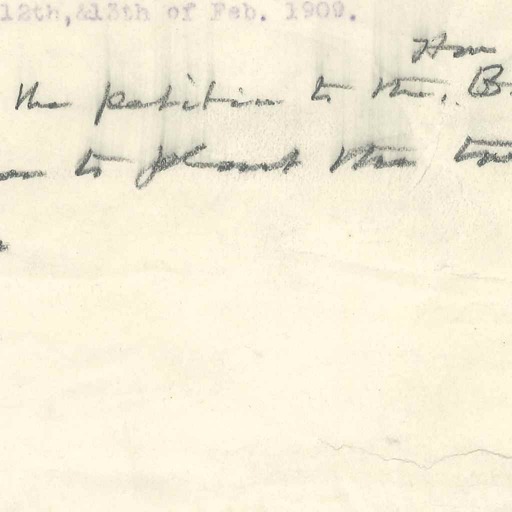 12th,&13th of Feb. 1909.
Hon
the petition to the, B
to plant the